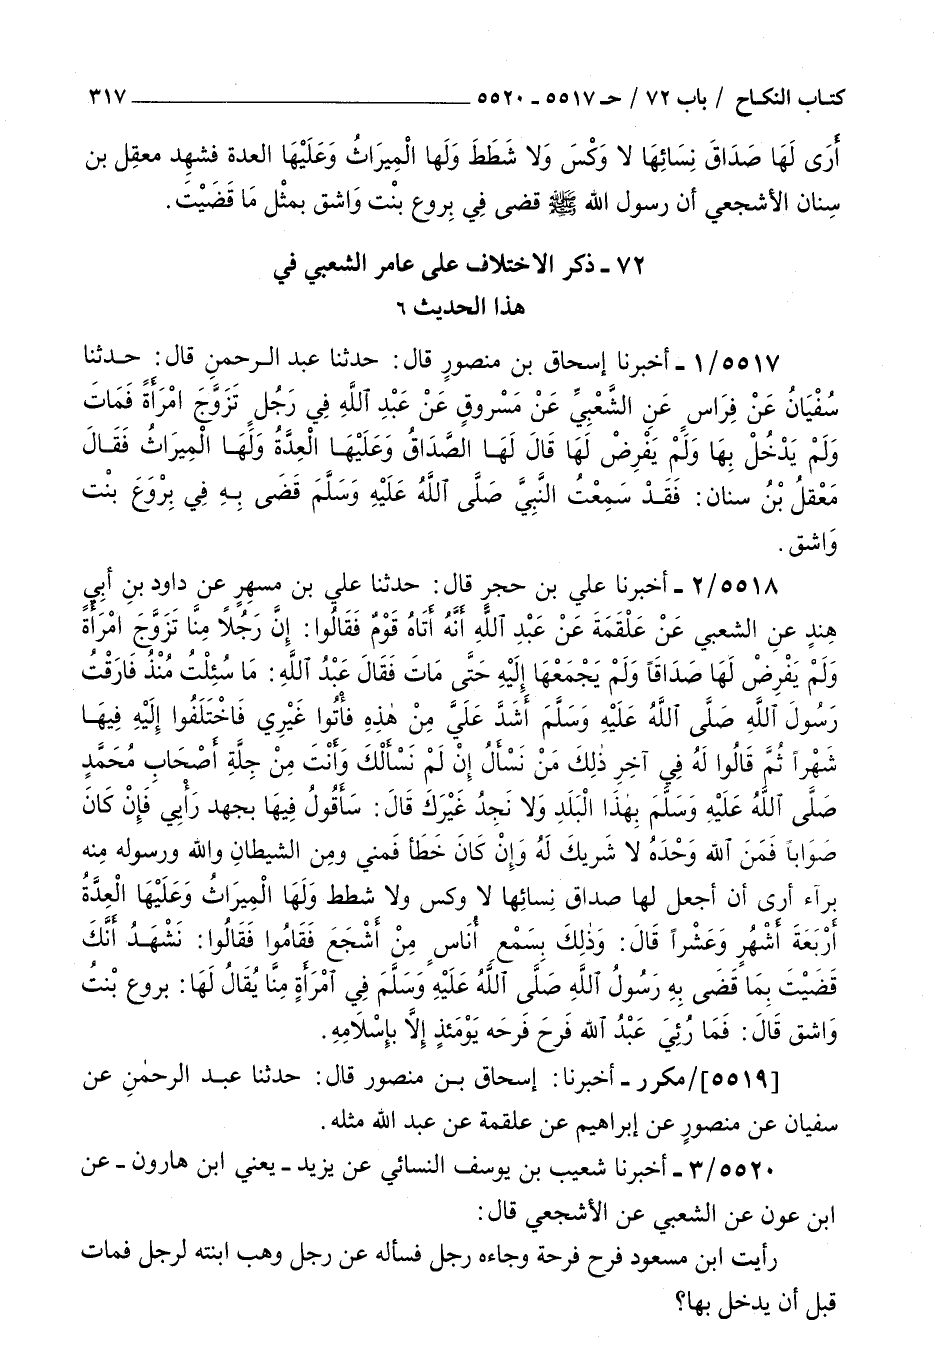 كتاب النكاح / باب ٧٢ / حـ ٥٥١٧ ـ ٥٥٢٠ ٣١٧
أَرَى لَهَا صَدَاقَ نِسَائِهَا لا وَكْسَ وَلا شَطَطَ وَلَها الْمِيرَاثُ وَعَلَيْهَا العدة فشهد معقل بن
سِنان الأشجعي أن رسول الله ﷺ قضى فِي بِروع بنْت وَاشق بمثْل مَا قَضَيْتَ.
٧٢ ـ ذكر الاختلاف على عامر الشعبي في
هذا الحديث ٦
١/٥٥١٧ ـ أخبرنا إسحاق بن منصورٍ قال: حدثنا عبد الرحمنِ قال: حدثنا
سُفْيَانُ عَنْ فِرَاسٍ عَنِ الشَّعْبِيِّ عَنْ مَسْروقٍ عَنْ عَبْدِ اللَّهِ فِي رَجُلٍ تَزَوَّجَ امْرَأَةً فَمَاتَ
وَلَمْ يَدْخُلْ بِهَا وَلَمْ يَفْرِضْ لَهَا قَالَ لَهَا الصَّدَاقُ وَعَلَيْهَا الْعِدَّةُ وَلَهَا الْمِيرَاثُ فَقَالَ
مَعْقلُ بْنُ سنان: فَقَدْ سَمِعْتُ النَّبِيَّ صَلَّى اللَّهُ عَلَيْهِ وَسَلَّمَ قَضَى بِهِ فِي بِرْوَعَ بنْت
وَاشق.
٢/٥٥١٨ ـ أخبرنا علي بن حجرٍ قال: حدثنا علي بن مسهرٍ عن داود بنِ أَبِي
هِندٍ عنِ الشعبي عَنْ عَلْقَمَةَ عَنْ عَبْدِ اللَّهِ أَنَّهُ أَتَاهُ قَوْمٌ فَقَالُوا: إِنَّ رَجُلاً مِنَّا تَزَوَّجَ امْرَأَةً
وَلَمْ يَفْرِضْ لَهَا صَدَاقَاً وَلَمْ يَجْمَعْهَا إِلَيْهِ حَتَّى مَاتَ فَقَالَ عَبْدُ اللَّهِ: مَا سُئِلْتُ مُنْذُ فَارَقْتُ
رَسُولَ اللَّهِ صَلَّى اللَّهُ عَلَيْهِ وَسَلَّمَ أَشَدَّ عَلَيَّ مِنْ هٰذِهِ فأْتُوا غَيْرِي فَاخْتَلَفُوا إِلَيْهِ فِيهَا
شَهْراً ثُمَّ قَالُوا لَهُ فِي آخِرِ ذٰلِكَ مَنْ نَسْأَلُ إِنْ لَمْ نَسْأَلْكَ وَأَنْتَ مِنْ جِلَّةِ أَصْحَابِ مُحَمَّدٍ
صَلَّى اللَّهُ عَلَيْهِ وَسَلَّمَ بِهٰذَا الْبَلَدِ وَلا نَجِدُ غَيْرَكَ قَالَ: سَأَقُولُ فِيهَا بجهد رَأْيِي فَإِنْ كَانَ
صَوَاباً فَمَنَ اللَّه وَحْدَهُ لا شَرِيكَ لَهُ وَإِنْ كَانَ خَطَأ فمني ومِن الشيطانِ واللَّه ورسوله مِنه
برآء أرى أن أجعل لها صداق نِسائها لا وكس ولا شطط وَلَهَا الْمِيرَاثُ وَعَلَيْهَا الْعِدَّةُ
أَرْبَعَةَ أَشْهُرٍ وَعَشْراً قَالَ: وَذٰلِكَ بِسَمْعِ أُنَاسٍ مِنْ أَشْجَعَ فَقَامُوا فَقَالُوا: نَشْهَدُ أَنَّكَ
قَضَيْتَ بِمَا قَضَى بِهِ رَسُولُ اللَّهِ صَلَّى اللَّهُ عَلَيْهِ وَسَلَّمَ فِي امْرَأَةٍ مِنَّا يُقَالُ لَهَا: بروع بنْتُ
وَاشق قَالَ: فَمَا رُئِيَ عَبْدُ اللَّه فَرِحَ فَرحَه يَوْمَئذٍ إِلَّا بِإِسْلَامِهِ.
[٥٥١٩]/مكرر ـ أخبرنا: إسحاق بن منصور قال: حدثنا عبد الرحمٰنِ عن
سفيان عن منصورٍ عن إبراهيم عن علقمة عن عبد اللَّه مثله.
٣/٥٥٢٠ ـ أخبرنا شعيب بن يوسف النسائي عن يزيد ـ يعني ابن هارون ـ عن
ابن عون عن الشعبي عن الأشجعي قال:
رأيت ابن مسعود فرح فرحة وجاءه رجل فسأله عن رجل وهب ابنته لرجل فمات
قبل أن يدخل بها؟